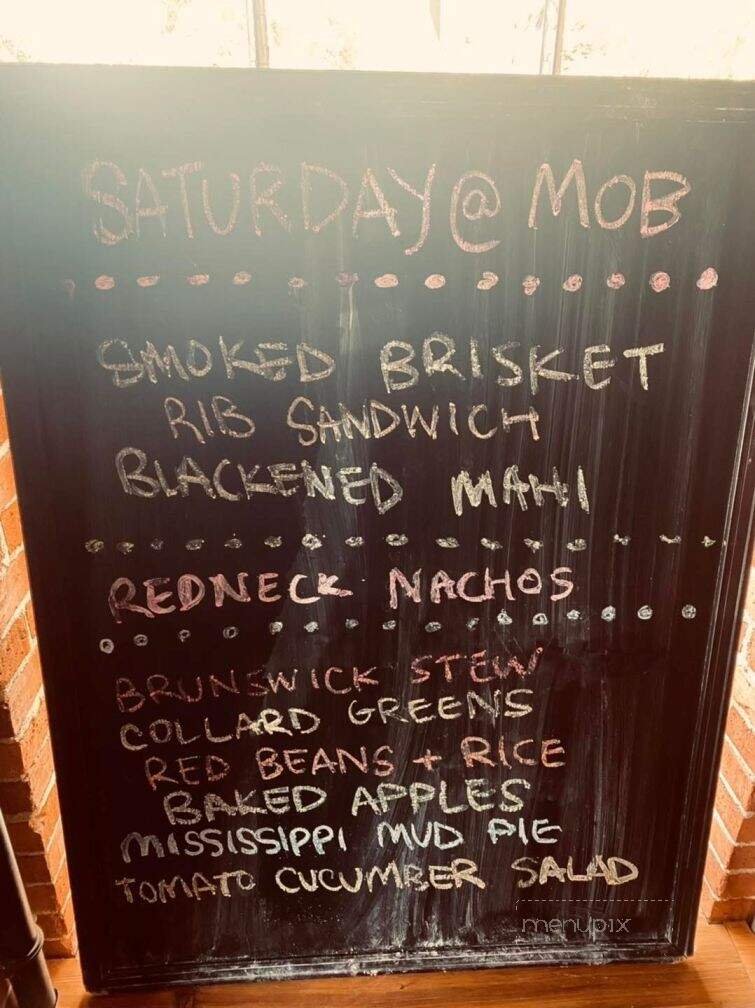 SATURDAY @ MOB
SMOKED BRISKET
RIB SANDWICH
BLACKENED MAHI
REDNECK NACHOS
BRUNSWICK STEW
COLLARD GREENS
RED BEANS + RICE
BAKED APPLES
MISSISSIPPI MUD PIE
TOMATO CUCUMBER SALAD
menupix